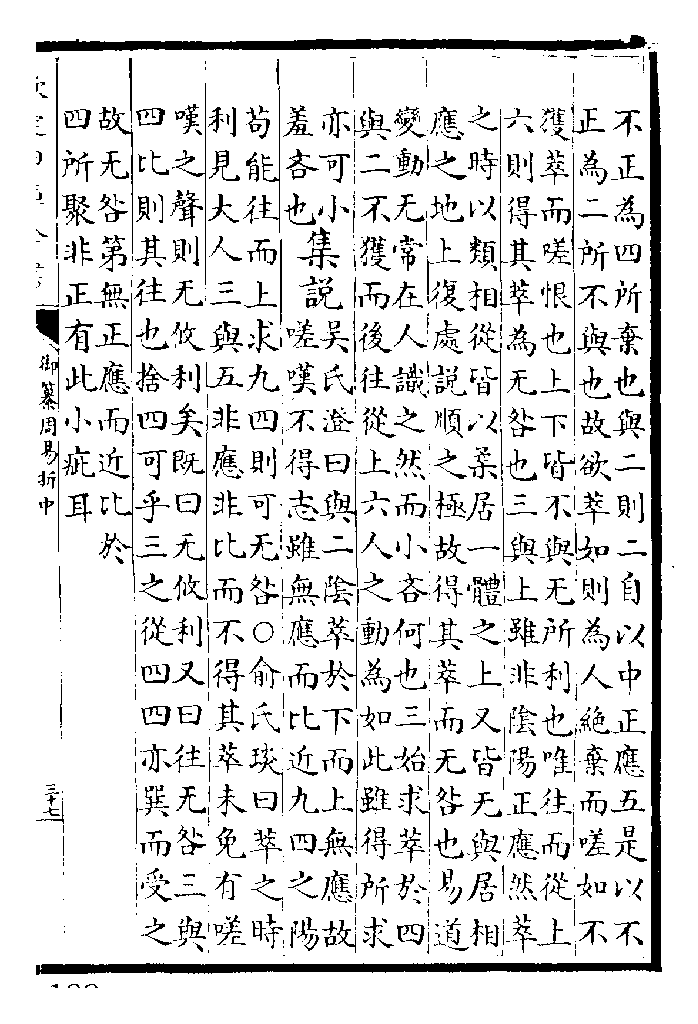 不正為四所棄也與二則二自以中正應五是以不
正為二所不與也故欲萃如則為人絕棄而嗟如不
獲萃而嗟恨也上下皆不與无所利也唯往而從上
六則得其萃為无咎也三與上雖非陰陽正應然萃
之時以類相從皆以柔居一體之上又皆无與居相
應之地上復處說順之極故得其萃而无咎也易道
變動无常在人識之然而小吝何也三始求萃於四
與二不獲而後往從上六人之動為如此雖得所求
亦可小
羞吝也
集說
吳氏澄曰與二陰萃於下而上無應故
嗟嘆不得志雖無應而比近九四之陽
苟能往而上求九四則可无咎○俞氏琰曰萃之時
利見大人三與五非應非比而不得其萃未免有嗟
嘆之聲則无攸利矣既曰无攸利又曰往无咎三與
四比則其往也捨四可乎三之從四四亦巽而受之
故无咎第無正應而近比於
四所聚非正有此小疵耳
御纂周易折中
三十七